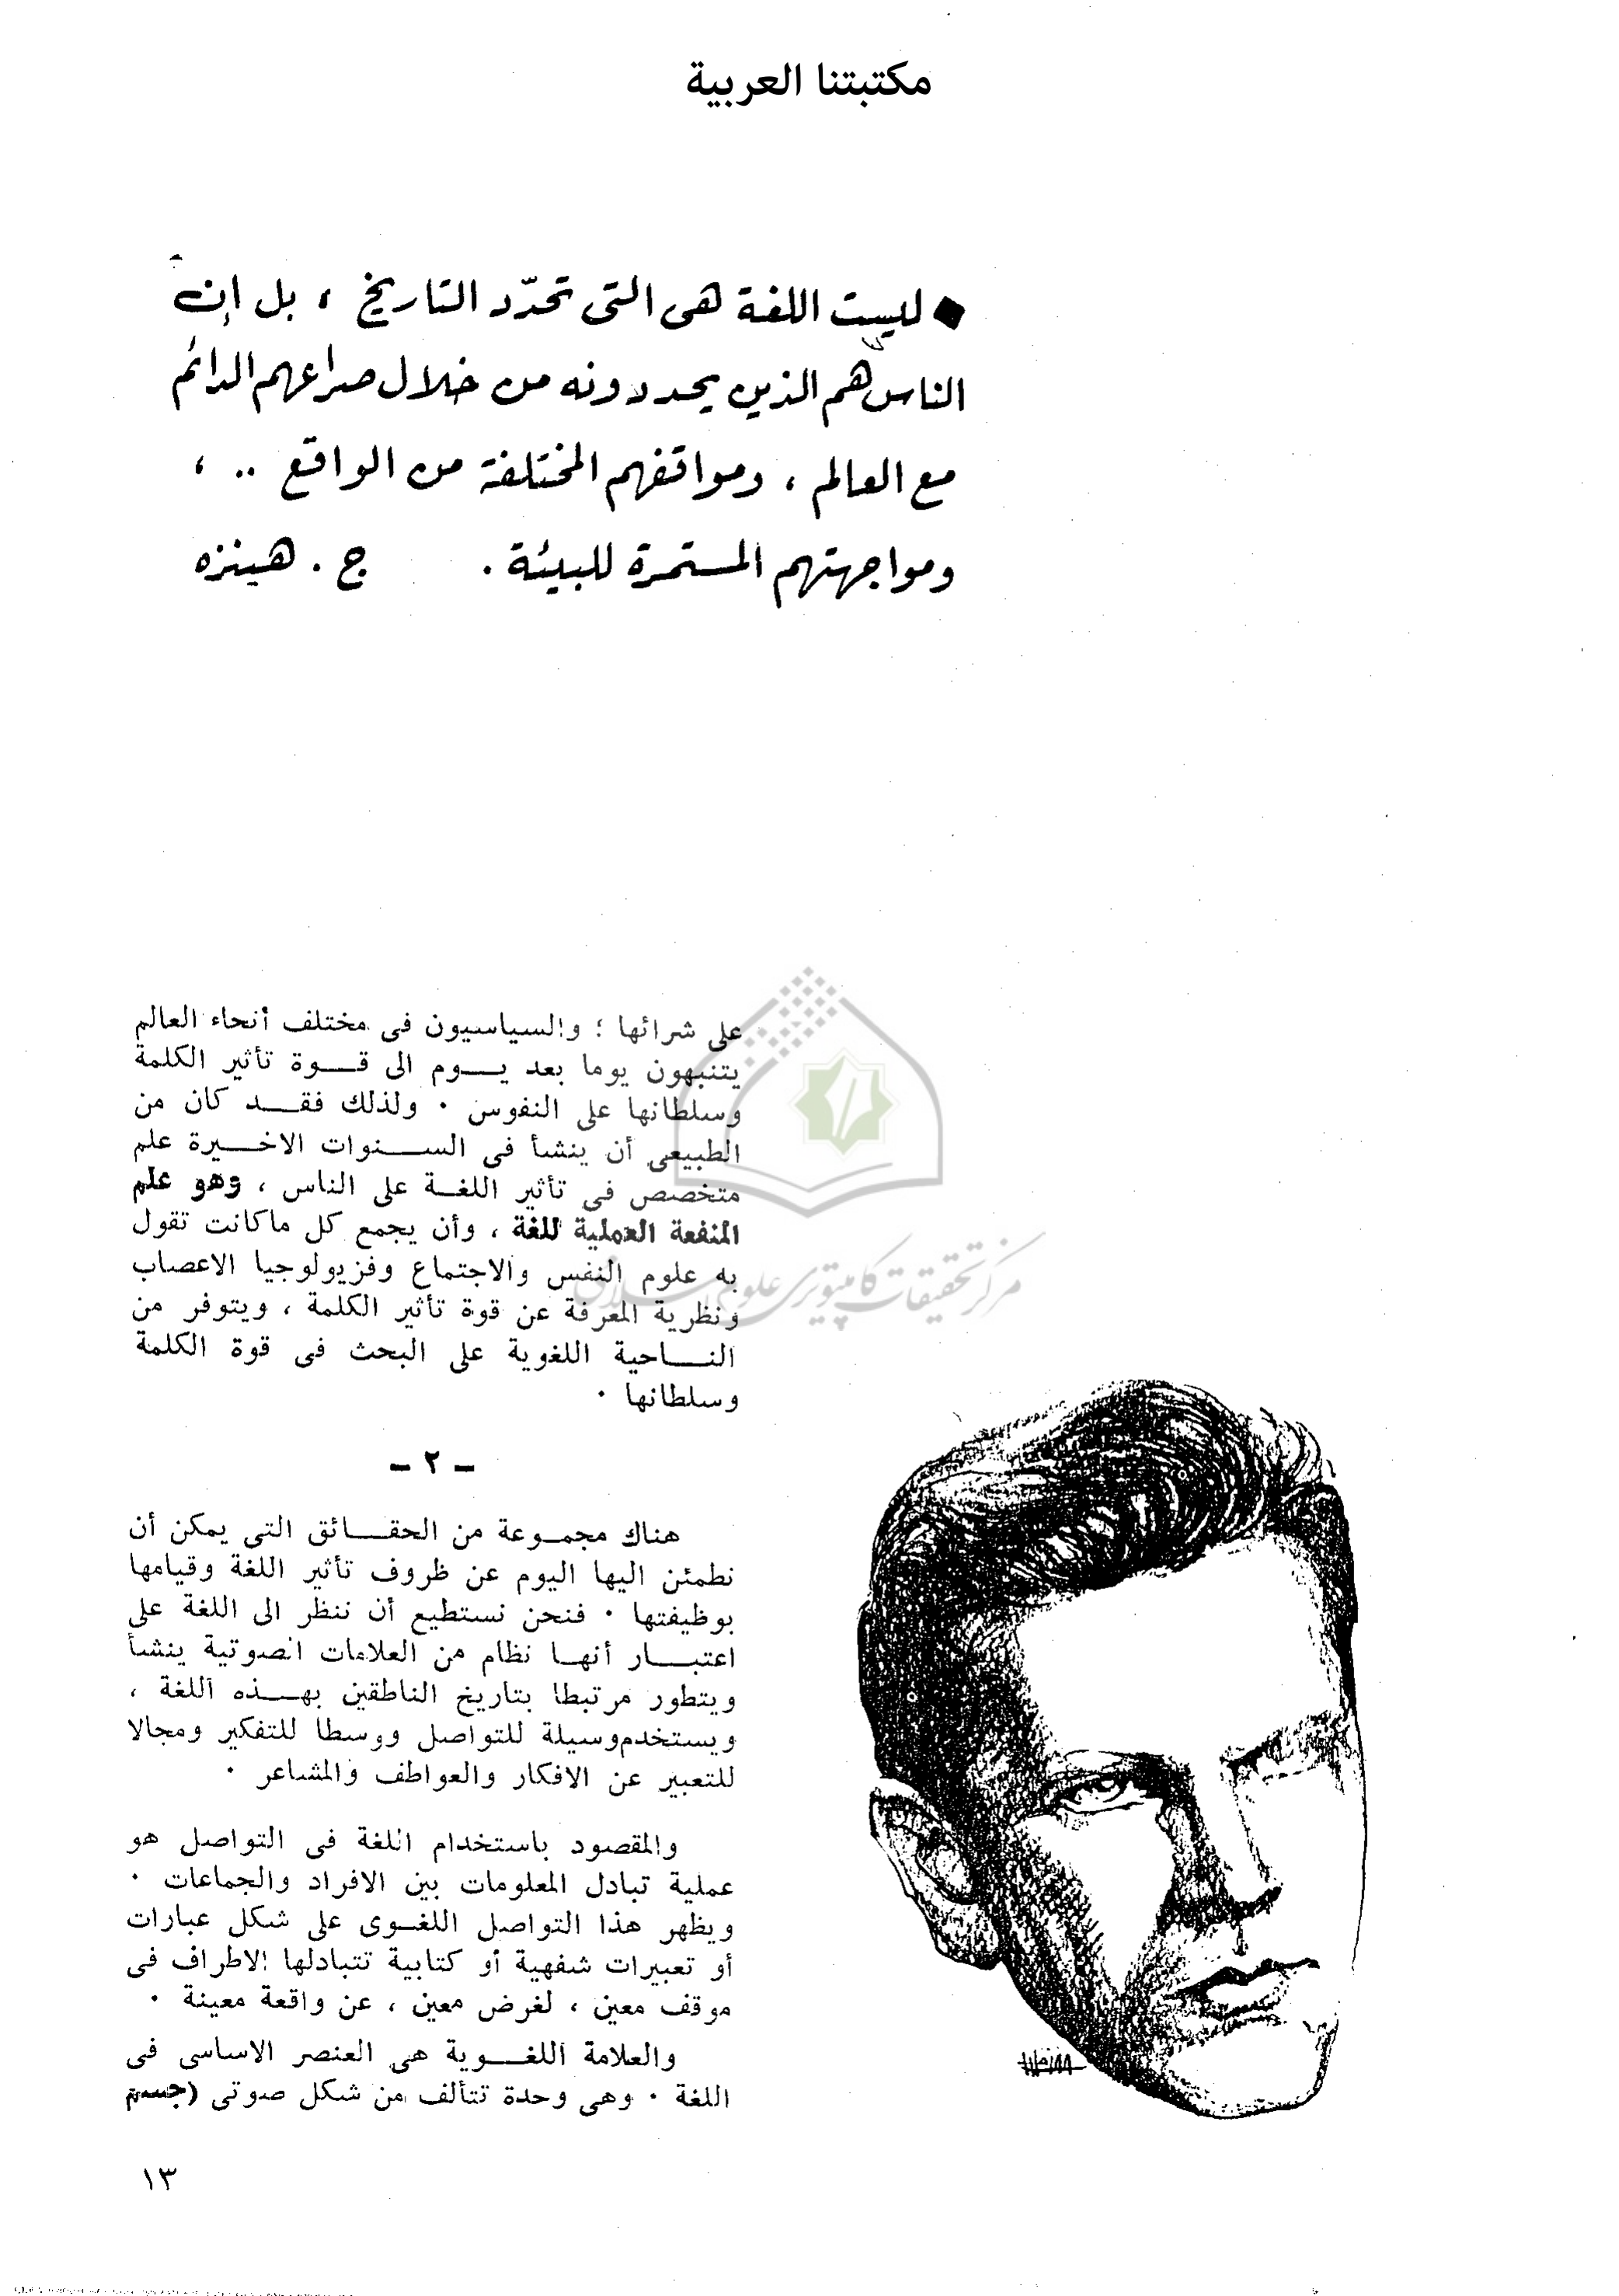 مكتبتنا العربية
ليست اللغة هى التى تحدّد التاريخ ، بل إن
الناس هم الذين يحددونه من خلال صراعهم الدائم
مع العالم ، ومواقفهم المختلفة من الواقع .. ،
ومواجهتهم المستمرة للبيئة . ج . هينزه
على شرائها ؛ والسياسيون فى مختلف أنحاء العالم
يتنبهون يوما بعد يوم الى قوة تأثير الكلمة
وسلطانها على النفوس . ولذلك فقد كان من
الطبيعى أن ينشأ فى السنوات الاخيرة علم
متخصص فى تأثير اللغة على الناس ، وهو علم
المنفعة العملية للغة ، وأن يجمع كل ماكانت تقول
به علوم النفس والاجتماع وفزيولوجيا الاعصاب
ونظرية المعرفة عن قوة تأثير الكلمة ، ويتوفر من
الناحية اللغوية على البحث فى قوة الكلمة
وسلطانها .
مركز تحقيقات كامپيوترى علوم اسلامى
- ٢ -
هناك مجموعة من الحقائق التى يمكن أن
نطمئن اليها اليوم عن ظروف تأثير اللغة وقيامها
بوظيفتها . فنحن نستطيع أن ننظر الى اللغة على
اعتبار أنها نظام من العلامات الصوتية ينشأ
ويتطور مرتبطا بتاريخ الناطقين بهذه اللغة ،
ويستخدم وسيلة للتواصل ووسطا للتفكير ومجالا
للتعبير عن الافكار والعواطف والمشاعر .
والمقصود باستخدام اللغة فى التواصل هو
عملية تبادل المعلومات بين الافراد والجماعات .
ويظهر هذا التواصل اللغوى على شكل عبارات
أو تعبيرات شفهية أو كتابية تتبادلها الاطراف فى
موقف معين ، لغرض معين ، عن واقعة معينة .
والعلامة اللغوية هى العنصر الاساسى فى
اللغة . وهى وحدة تتألف من شكل صوتى (جسم
١٣